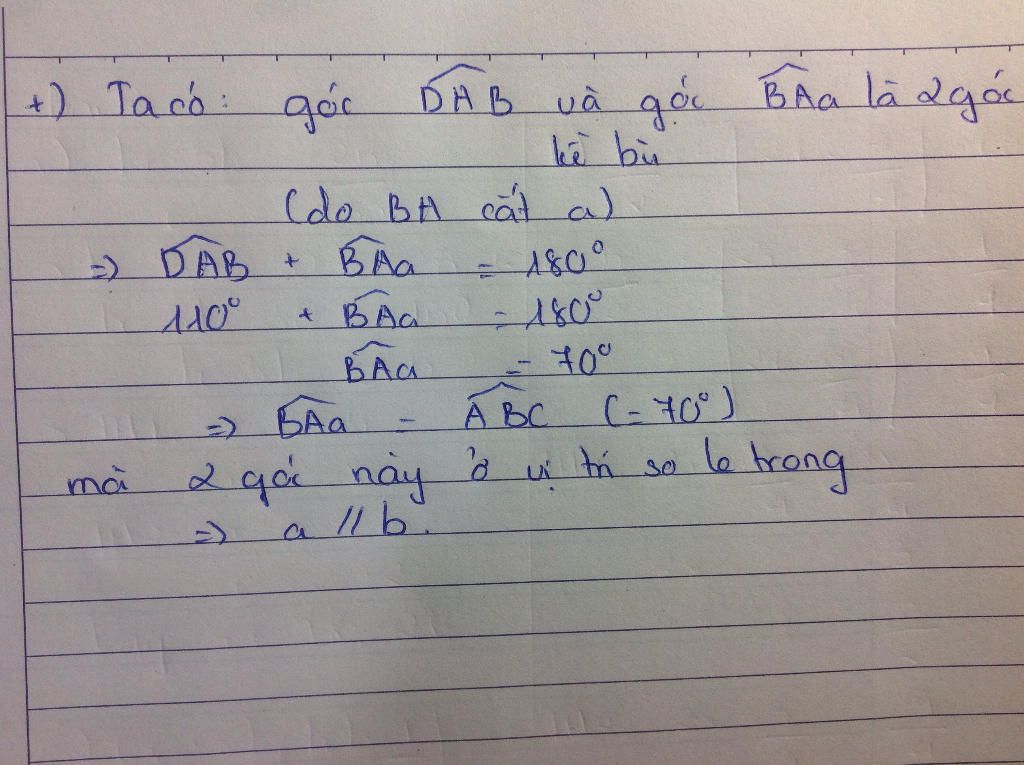 +) Ta có: góc DAB và góc BAa là 2 góc
kề bù
(do BA cắt a)
=> DAB + BAa = 180°
110° + BAa = 180°
BAa = 70°
=> BAa = ABC (= 70°)
mà 2 góc này ở vị trí so le trong
=> a // b.